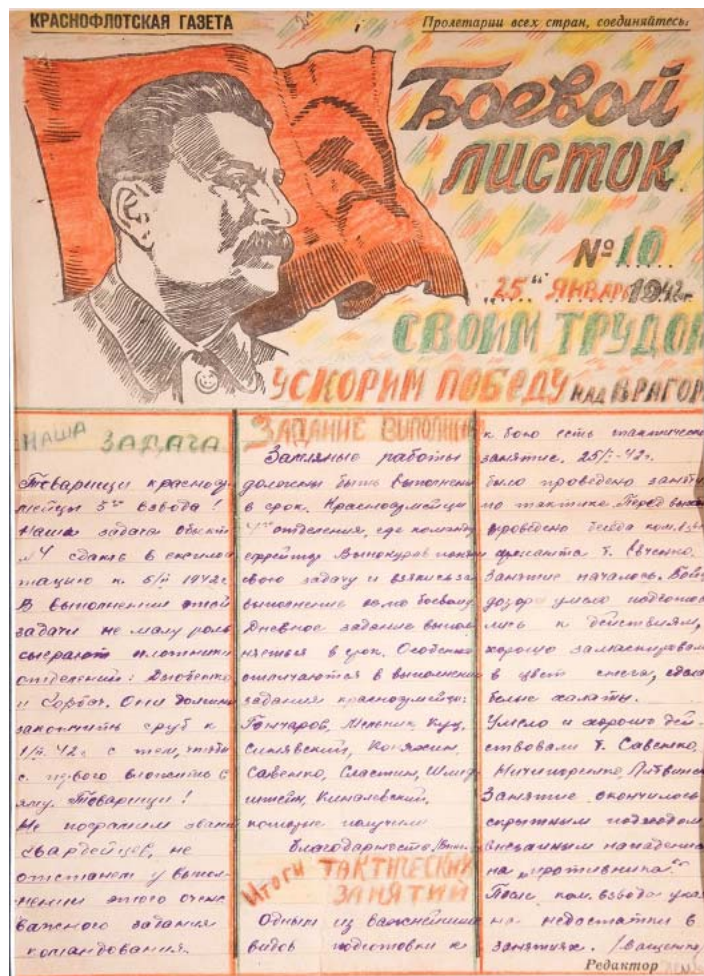 КРАСНОФЛОТСКАЯ ГАЗЕТА
Пролетарии всех стран, соединяйтесь!
Боевой
листок
№ 10
"25" ЯНВАРЬ 1942г.
СВОИМ ТРУДОМ
УСКОРИМ ПОБЕДУ НАД ВРАГОМ
НАША ЗАДАЧА
Товарищи красноар-
мейцы 5го взвода!
Наша задача объект
№4 сдать в эксплоа-
тацию к 5/II 1942г.
В выполнении этой
задачи не малу роль
сыграют плотники
отделений: Дзюбенко
и Горбач. Они должны
закончить сруб к
1/II. 42г. с тем, чтобы
с первого вложить в
яму. Товарищи!
Не посрамим звани
гвардейцев, не
отстанем у выпол-
нении этого очень
важного задания
командования.
ЗАДАНИЕ ВИПОЛНИМ
Земляные работы
должны быть выполнен
в срок. Красноармейци
4го отделения, где команд
ефрейтор Винокуров
свою задачу и взялись за
выполнение по боевому
Дневное задание выпол
няеться в срок. Особенно
отличаются в выполнени
задания красноармейци:
Гончаров, Мельник, Куц,
Синявский,
Савенко, Сластин,
штейн,
которые получили
благодарность
ИТОГИ ТАКТИЧЕСКИХ
ЗАНЯТИЙ
Одним из важнейших
видов подготовки к
к бою есть тактическо
занятие. 25/I-42г.
было проведено заняти
по тактике. Перед
проведено беседа ком. взво
сержанта т. Євченко.
Занятие началось. Бойци
дозор умело подготов
лись к действиям,
хорошо замаскировали
в цвет снега,
белые халаты.
Умело и хорошо дей-
ствовали т. Савенко,
Ничипоренко, Литвинен
Занятие окончилось
скрытным подходом
внезапним нападени
на "противника".
После ком. взвода указ
на недостатки в
занятиях. /Ващенко
Редактор